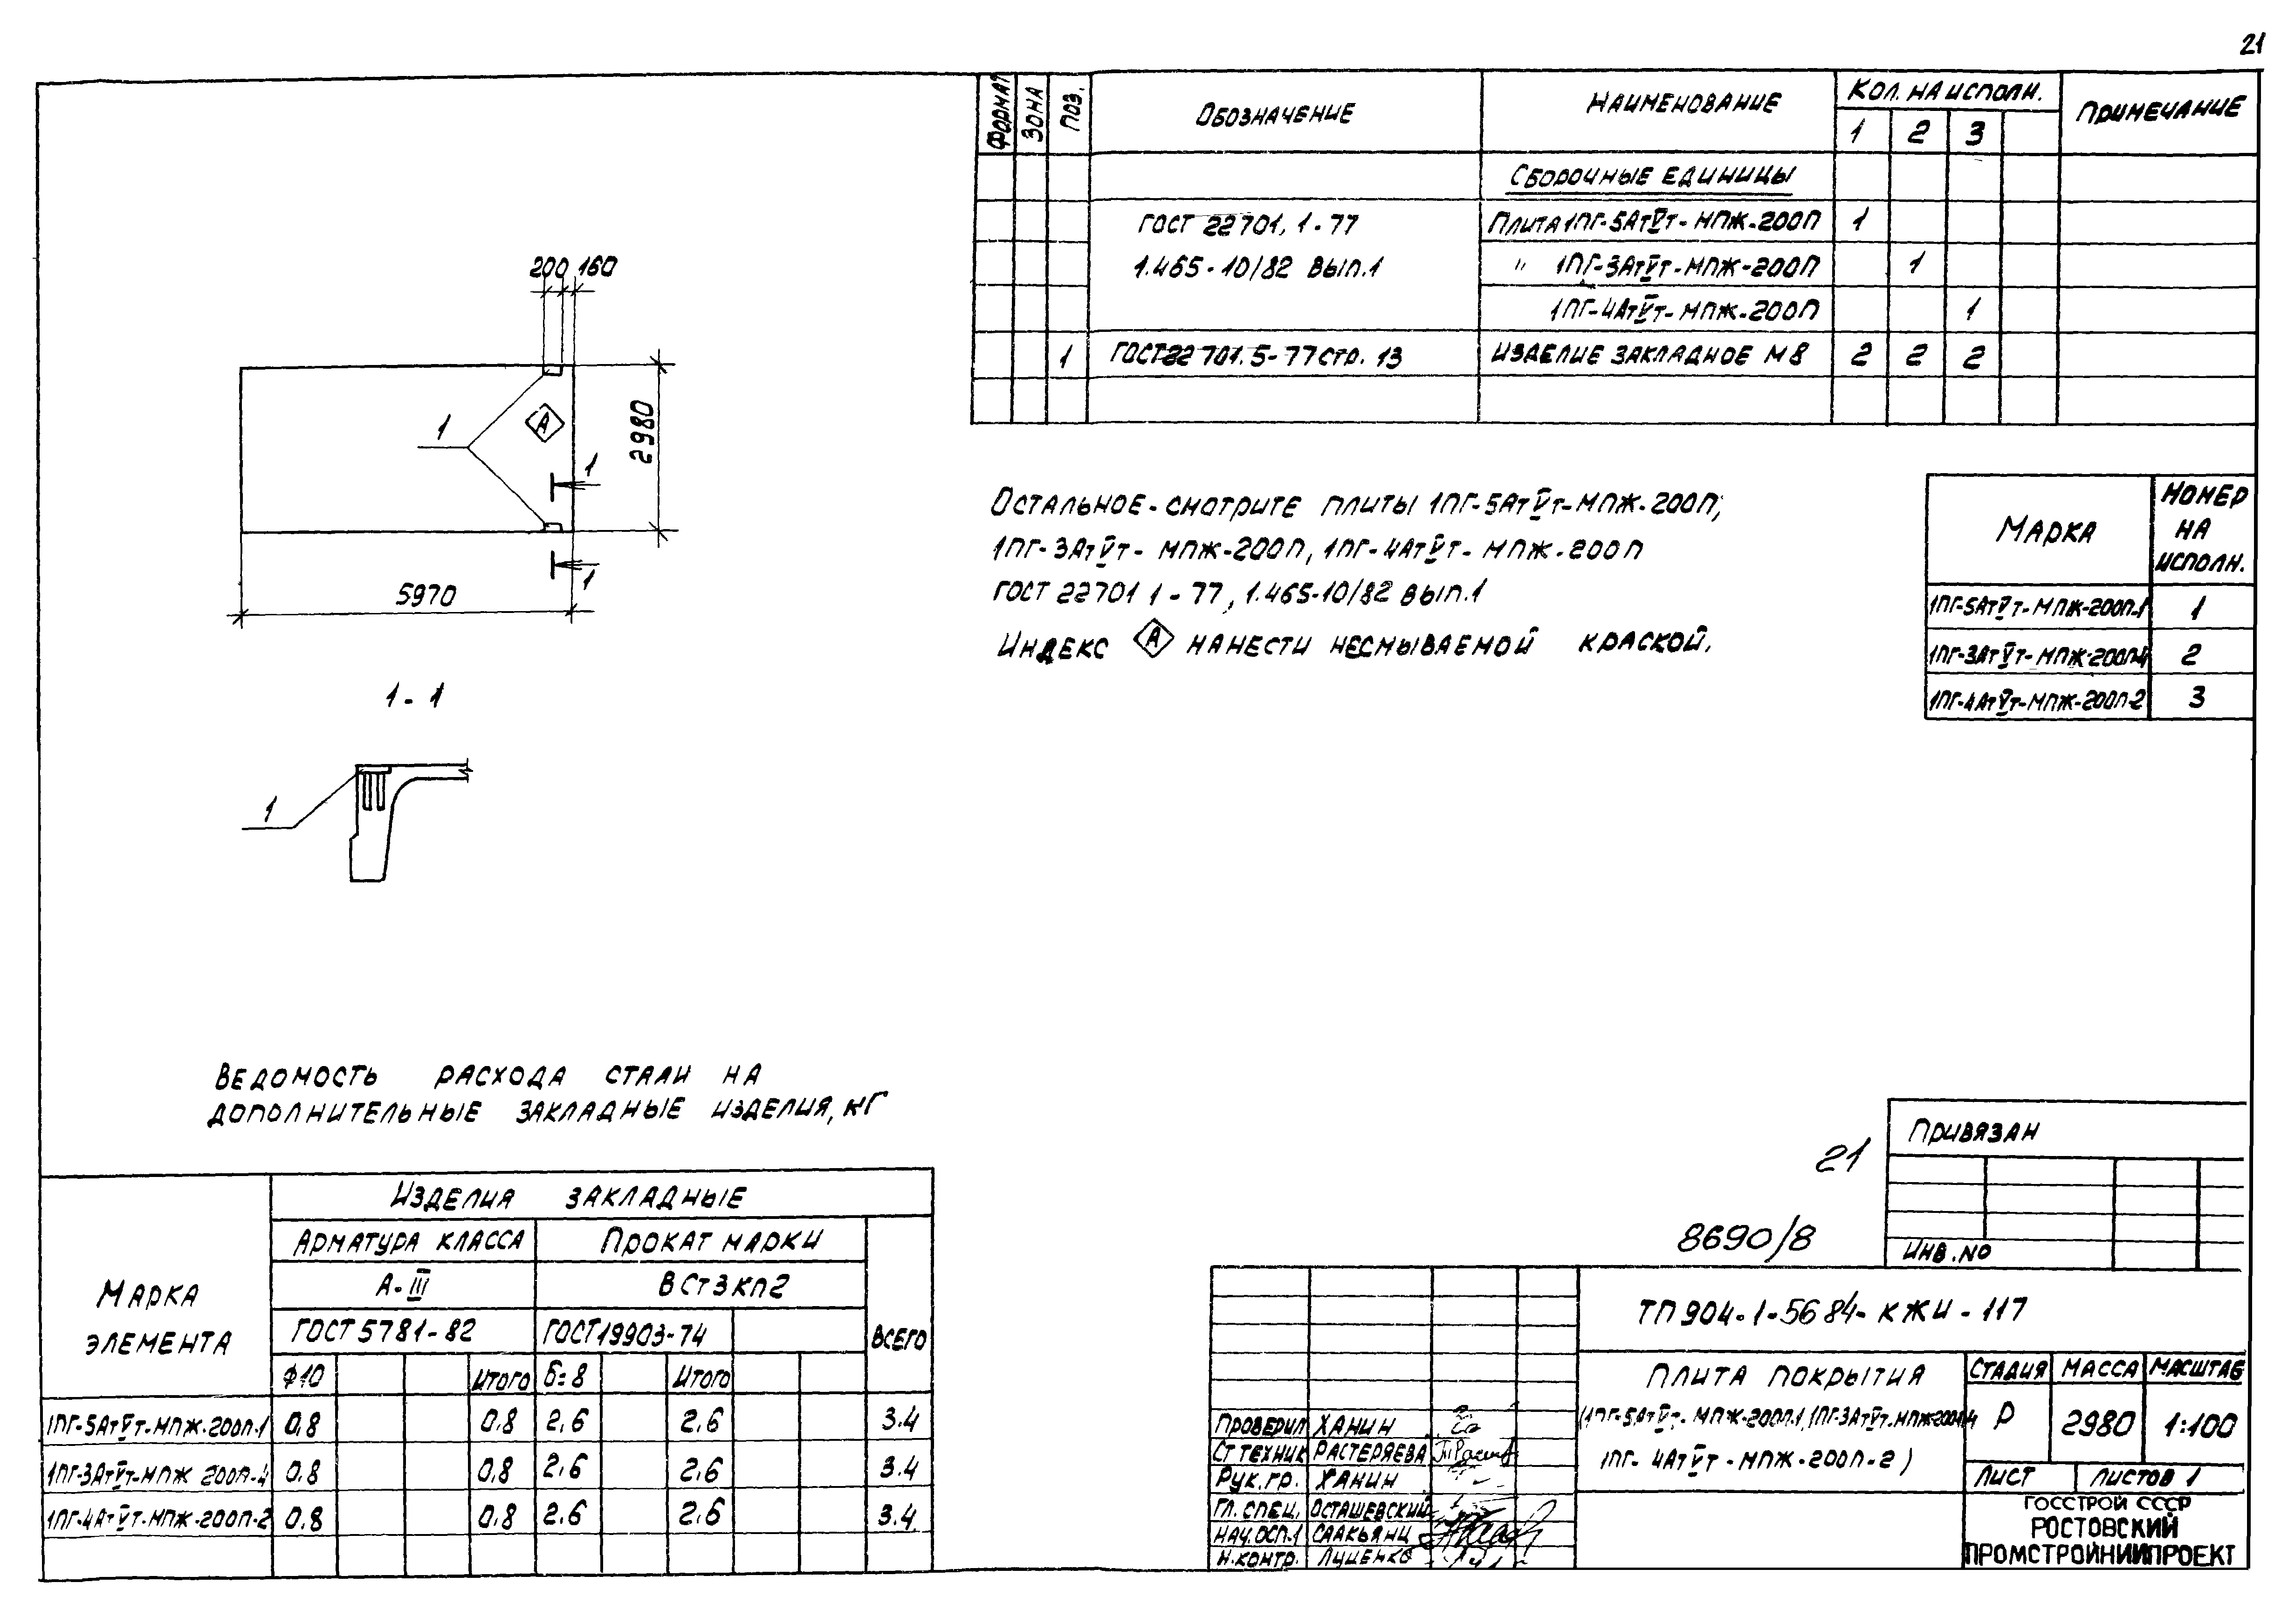 21
ФОРМАТ ЗОНА ПОЗ. ОБОЗНАЧЕНИЕ НАИМЕНОВАНИЕ КОЛ. НА ИСПОЛН. ПРИМЕЧАНИЕ
1 2 3
СБОРОЧНЫЕ ЕДИНИЦЫ
ГОСТ 22701, 1-77 ПЛИТА 1ПГ-5АтV̅т-МПЖ-200П 1
1.465-10/82 ВЫП.1 " 1ПГ-3АтV̅т-МПЖ-200П 1
1ПГ-4АтV̅т-МПЖ-200П 1
1 ГОСТ 22 701.5-77 СТР. 13 ИЗДЕЛИЕ ЗАКЛАДНОЕ М8 2 2 2
200 160
1
А
2980
1
1
5970
ОСТАЛЬНОЕ - СМОТРИТЕ ПЛИТЫ 1ПГ-5АтV̅т-МПЖ-200П,
1ПГ-3АтV̅т-МПЖ-200П, 1ПГ-4АтV̅т-МПЖ-200П
ГОСТ 22701 1-77, 1.465-10/82 ВЫП.1
ИНДЕКС А НАНЕСТИ НЕСМЫВАЕМОЙ КРАСКОЙ.
МАРКА НОМЕР
НА
ИСПОЛН.
1ПГ-5АтV̅т-МПЖ-200П-1 1
1ПГ-3АтV̅т-МПЖ-200П-4 2
1ПГ-4АтV̅т-МПЖ-200П-2 3
1-1
1
ВЕДОМОСТЬ РАСХОДА СТАЛИ НА
ДОПОЛНИТЕЛЬНЫЕ ЗАКЛАДНЫЕ ИЗДЕЛИЯ, КГ
МАРКА
ЭЛЕМЕНТА
ИЗДЕЛИЯ ЗАКЛАДНЫЕ
АРМАТУРА КЛАССА ПРОКАТ МАРКИ
А-III ВСт3кп2
ГОСТ 5781-82 ГОСТ 19903-74 ВСЕГО
Ф10 ИТОГО Б=8 ИТОГО
1ПГ-5АтV̅т-МПЖ-200П-1 0,8 0,8 2,6 2,6 3.4
1ПГ-3АтV̅т-МПЖ 200П-4 0.8 0,8 2,6 2,6 3.4
1ПГ-4АтV̅т-МПЖ-200П-2 0.8 0,8 2,6 2,6 3.4
21
8690/8
ПРИВЯЗАН
ИНВ.NO
ТП 904-1-56 84-КЖИ-117
ПЛИТА ПОКРЫТИЯ
(1ПГ-5АтV̅т-МПЖ-200П-1, 1ПГ-3АтV̅т-МПЖ-200П-4
1ПГ-4АтV̅т-МПЖ-200П-2)
СТАДИЯ МАССА МАСШТАБ
Р 2980 1:100
ЛИСТ ЛИСТОВ 1
ГОССТРОЙ СССР
РОСТОВСКИЙ
ПРОМСТРОЙНИИПРОЕКТ
ПРОВЕРИЛ ХАНИН
СТ ТЕХНИК РАСТЕРЯЕВА
РУК.ГР. ХАНИН
ГЛ. СПЕЦ. ОСТАШЕВСКИЙ
НАЧ.ОСП-1 СААКЬЯНЦ
Н.КОНТР. ЛУЦЕНКО